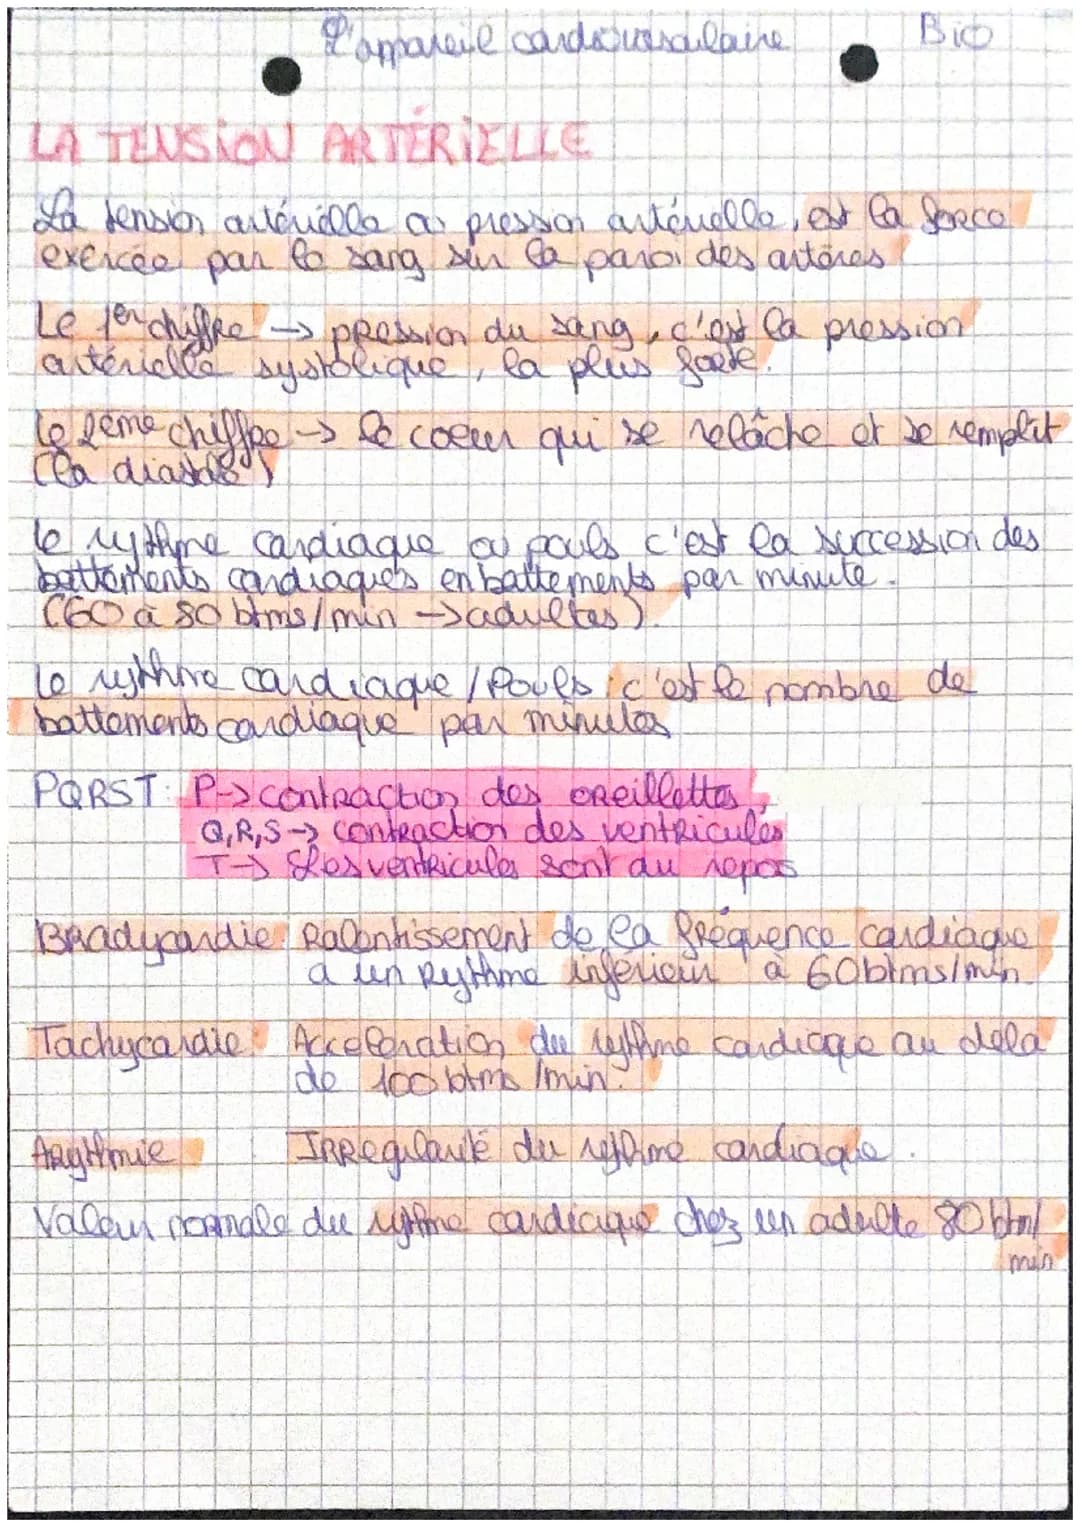 L'appareil cardiovasculaire Bio
LA TENSION ARTÉRIELLE
La tension artérielle ou pression artérielle, est la force
exercée par le sang sur la paroi des artères
Le 1er chiffre → pression du sang, c'est la pression
artérielle systolique, la plus forte.
Le 2ème chiffre → le coeur qui se relâche et se remplit
(la diastole)
le rythme cardiaque ou pouls c'est la succession des
battements cardiaques en battements par minute.
(60 à 80 btms/min → adultes).
le rythme cardiaque / Pouls : c'est le nombre de
battements cardiaque par minutes
PQRST: P → contraction des oreillettes,
Q,R,S → contraction des ventricules
T → Les ventricules sont au repos
Bradycardie: Ralentissement de la fréquence cardiaque
a un rythme inférieur à 60btms/min
Tachycardie: Acceleration du rythme cardiaque au dela
de 100 btms/min.
Arythmie Irregularité du rythme cardiaque.
Valeur normale du rythme cardiaque chez un adulte 80 btm/
min